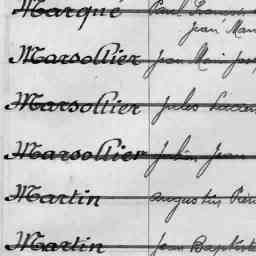 Marqué Paul François
Jean Mari
Marsollier Jean Mari Jose
Marsollier Jules Lucien
Marsollier Julien Jean
Martin Augustin Pierr
Martin Jean Baptiste